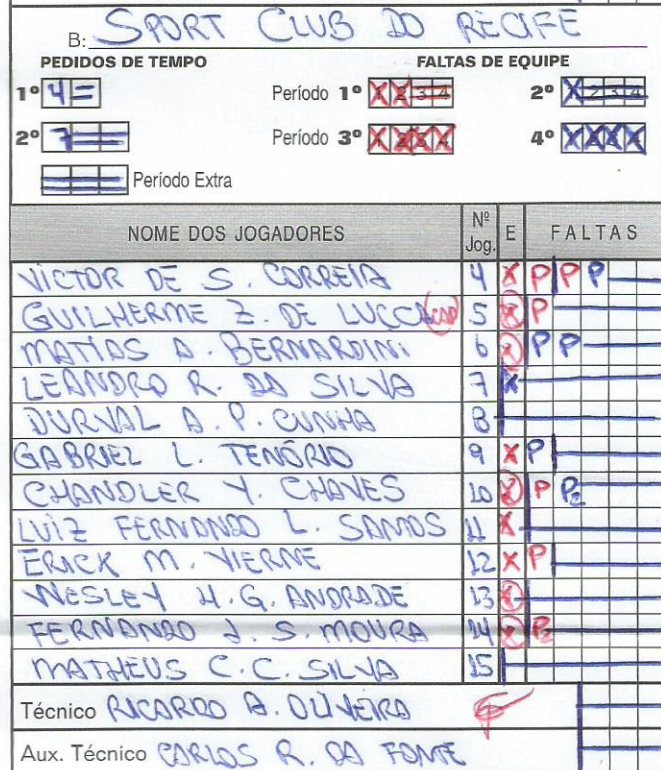 B: SPORT CLUB DO RECIFE
PEDIDOS DE TEMPO FALTAS DE EQUIPE
1º 4 = Período 1º X X 3 4 2º X 2 3 4
2º 7 Período 3º X X X X 4º X X X X
Período Extra
NOME DOS JOGADORES Nº Jog. E FALTAS
VICTOR DE S. CORREIA 4 X P P P
GUILHERME Z. DE LUCCA (CAP) 5 X P
MATIAS A. BERNARDINI 6 X P P
LEANDRO R. DA SILVA 7 X
DURVAL A. P. CUNHA 8
GABRIEL L. TENÓRIO 9 X P
CHANDLER Y. CHAVES 10 X P P2
LUIZ FERNANDO L. SANTOS 11 X
ERICK M. VIERNE 12 X P
WESLEY H. G. ANDRADE 13 X
FERNANDO J. S. MOURA 14 X P2
MATHEUS C. C. SILVA 15
Técnico RICARDO A. OLIVEIRA
Aux. Técnico CARLOS R. DA FONTE